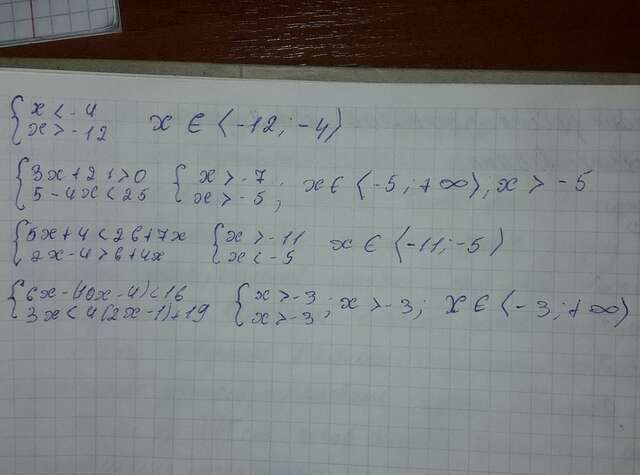 { x < -4
x > -12   x ∈ (-12; -4)
{ 3x + 21 > 0
5 - 4x < 25   { x > -7
x > -5 ;   x ∈ (-5; +∞), x > -5
{ 5x + 4 < 26 + 7x
2x - 4 > 6 + 4x   { x > -11
x < -5   x ∈ (-11; -5)
{ 6x - (10x - 4) < 16
3x < 4(2x - 1) + 19   { x > -3
x > -3 ; x > -3; x ∈ (-3; +∞)